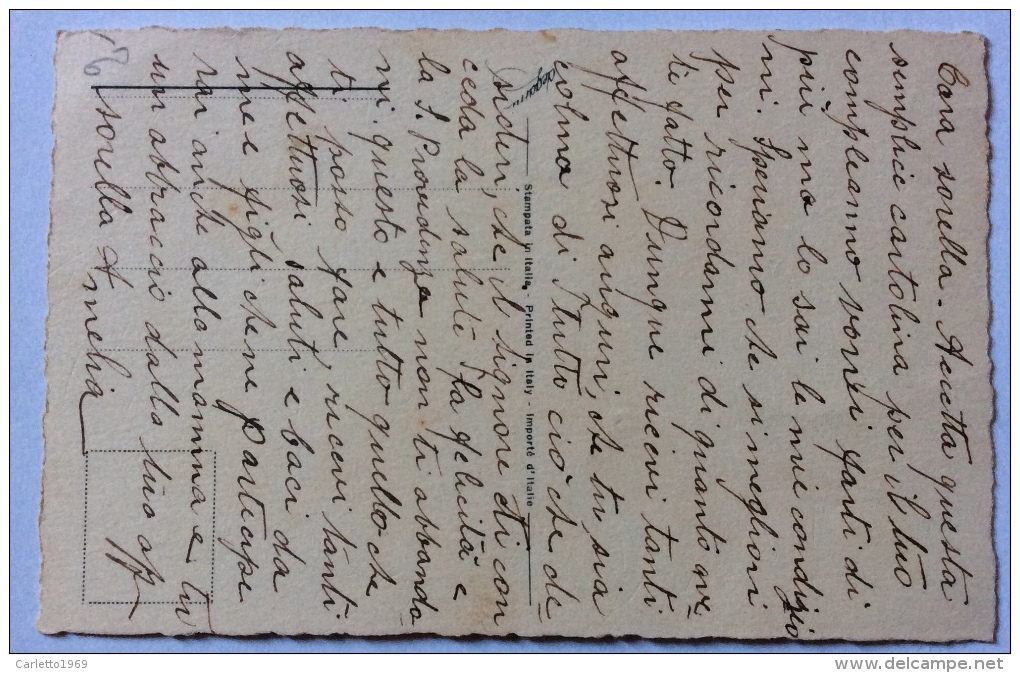 Cara sorella. Accetta questa
semplice cartolina per il tuo
compleanno vorrei farti di
più ma lo sai le mie condizio
ni. Speriamo che si megliori
per ricordarmi di quanto m'e
ti fatto. Dunque ricevi tanti
affettuosi auguri, che tu sia
colma di tutto ciò che de
sideri, che il Signore ti con
ceda la salute fa felicità e
la S. Provedenza non ti abbando
ni questo e tutto quello che
ti posso fare, ricevi tanti
affettuosi saluti e baci da
me e figli che ne partecipe
rai anche alla mamma e tu
un abbraccio dalla tua aff
sorella Amelia
Stampata in Italia - Printed in Italy - Importé d'Italie
Carletto1969
delcampe.net